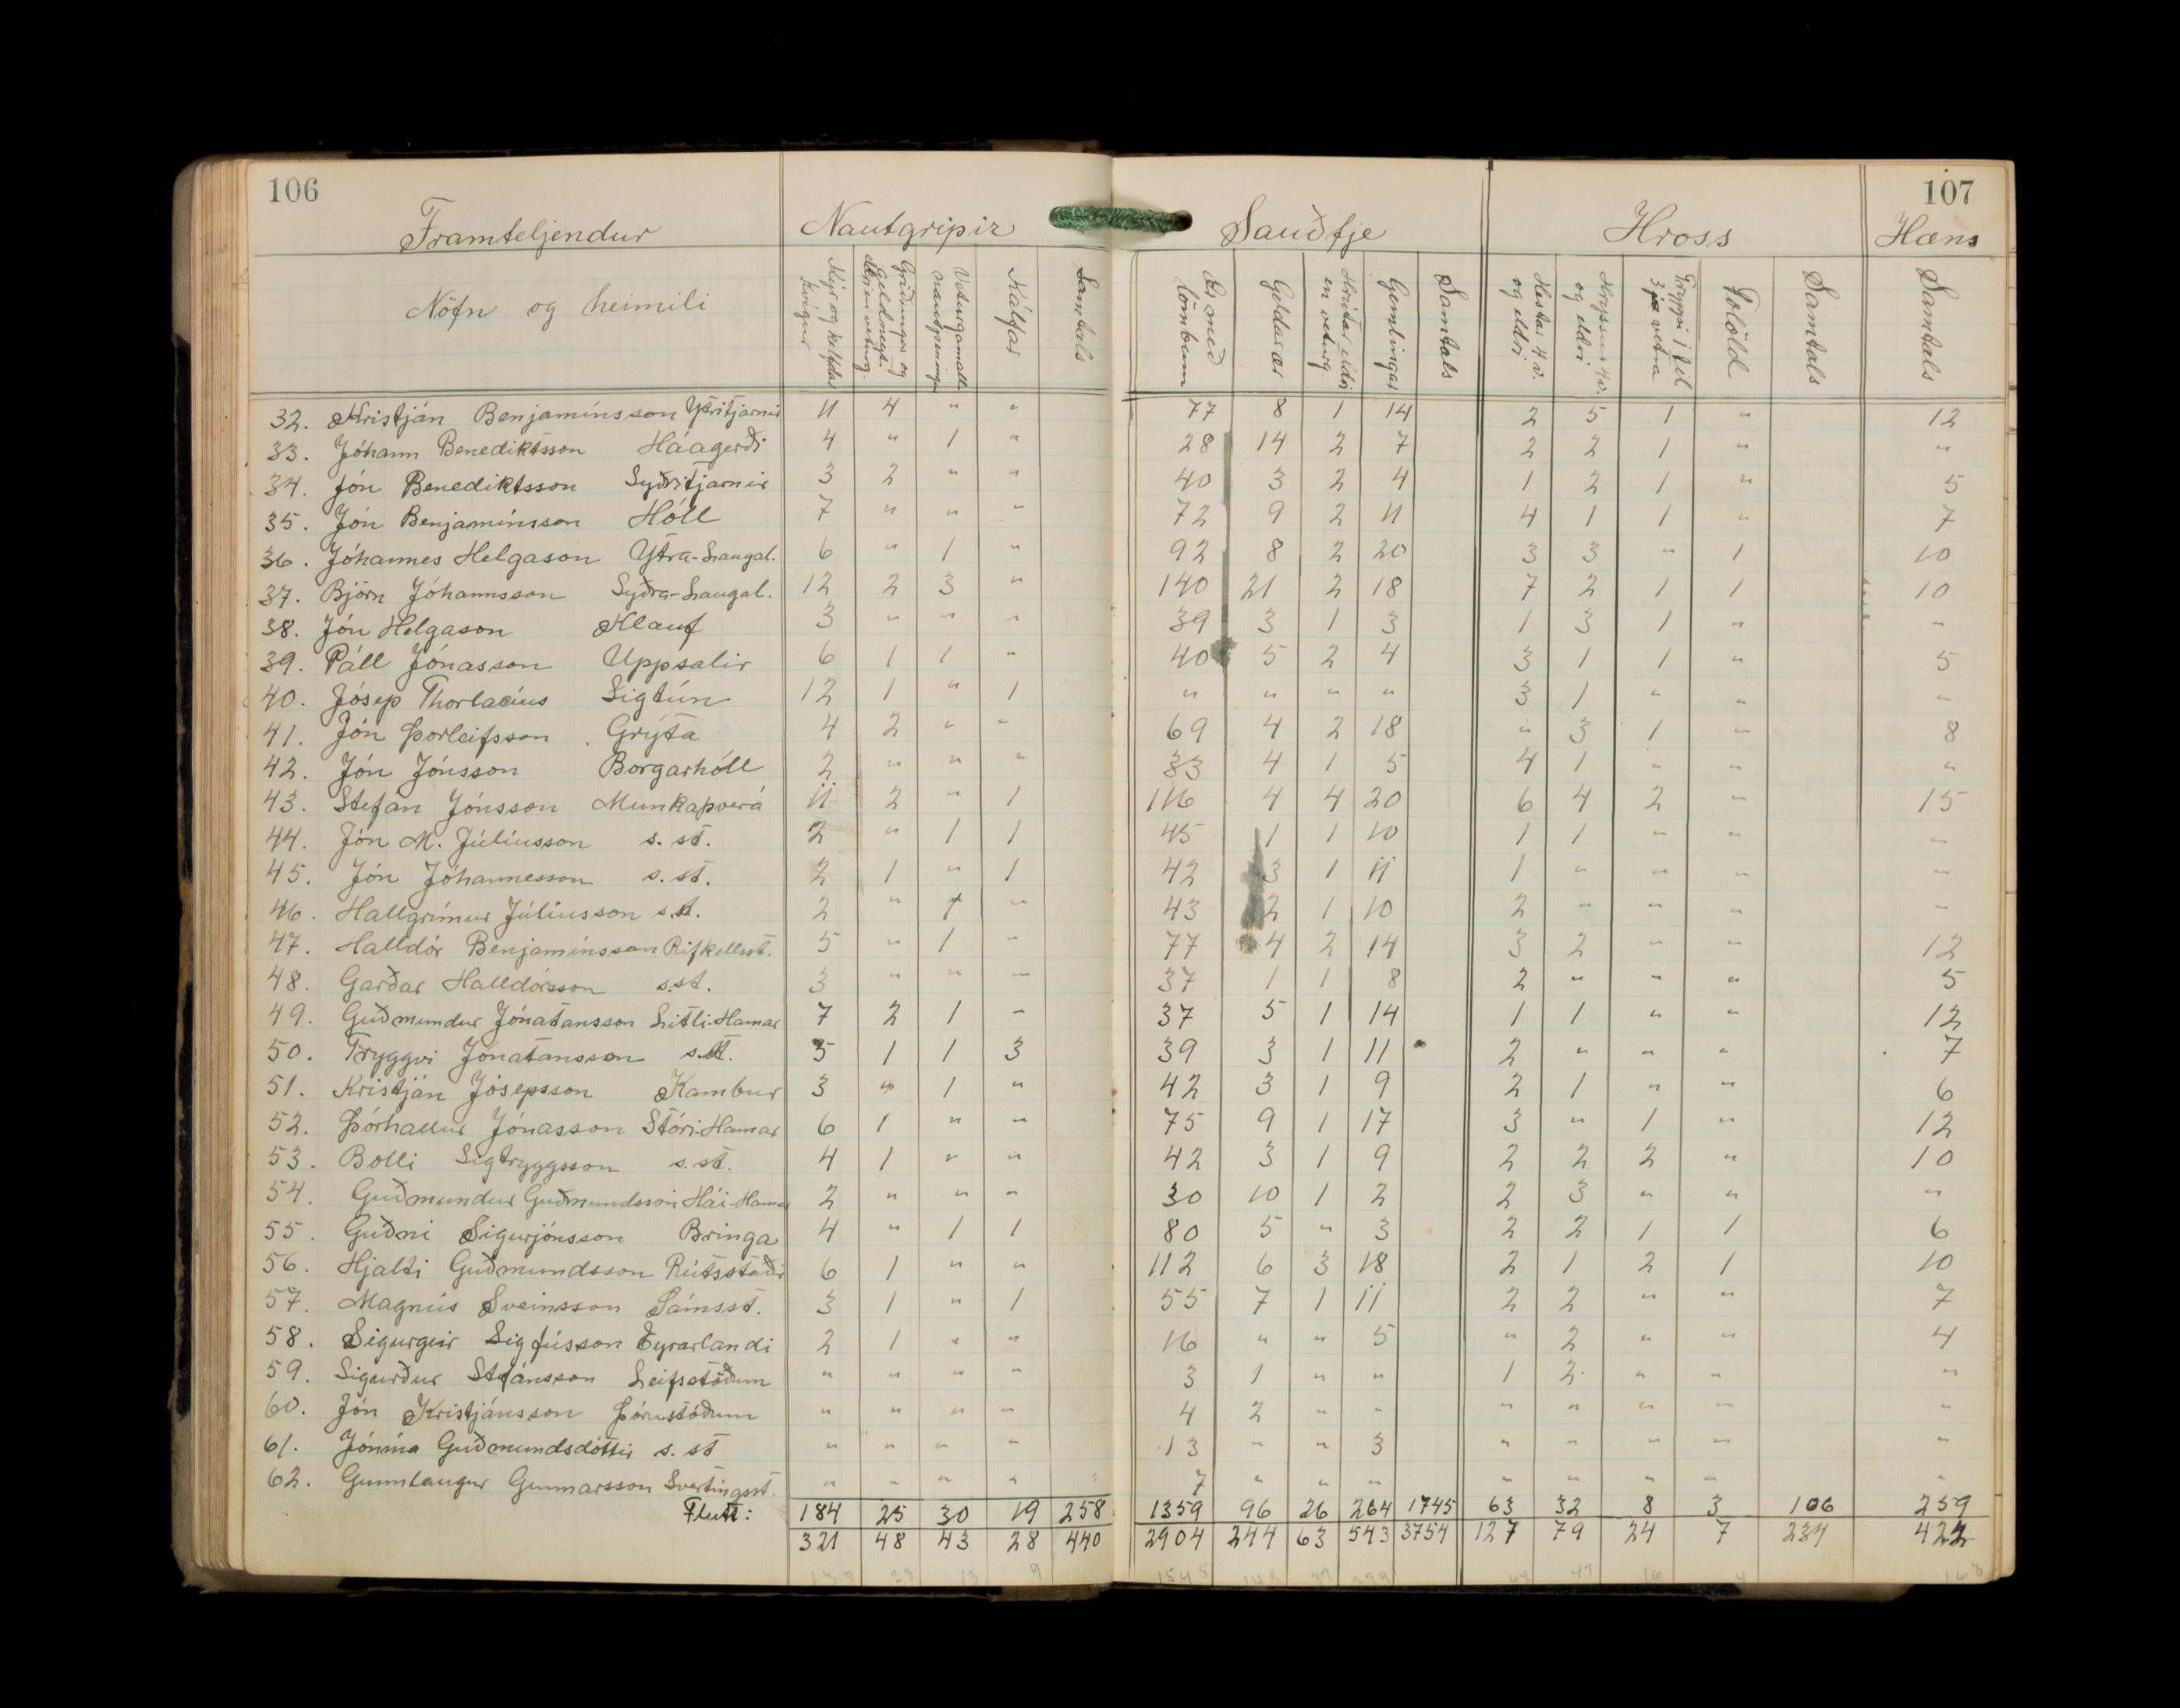 106
107
Framteljendur Nautgripir Sauðfje Hross Hæns
Nöfn og heimili Kýr og kelfdar kvígur Griðungar og Geldneyti eldri en veturg. Veturgamall nautpeningur Kálfar Samtals Ær með lömbum Geldar ær Hrútar eldri en veturg. Gemlingar Samtals Hestar 4 v. og eldri Hryssur 4 v. og eldri Tryppi 1 til 3ja vetra Folöld Samtals Samtals
32. Kristján Benjamínsson Ytritjarnir 11 4 " " 77 8 1 14 2 5 1 " 12
33. Jóhann Benediktsson Háagerði 4 " 1 " 28 14 2 7 2 2 1 " "
34. Jón Benediktsson Syðritjarnir 3 2 " " 40 3 2 4 1 2 1 " 5
35. Jón Benjamínsson Hóll 7 " " " 72 9 2 11 4 1 1 " 7
36. Jóhannes Helgason Ytra-Laugal. 6 " 1 " 92 8 2 20 3 3 " 1 10
37. Björn Jóhannsson Syðra-Laugal. 12 2 3 " 140 21 2 18 7 2 1 1 10
38. Jón Helgason Klauf 3 " " " 39 3 1 3 1 3 1 " "
39. Páll Jónasson Uppsalir 6 1 1 " 40 5 2 4 3 1 1 " 5
40. Jósep Thorlacíus Sigtún 12 1 " 1 " " " " 3 1 " " "
41. Jón Þorleifsson Grýta 4 2 " " 69 4 2 18 " 3 1 " 8
42. Jón Jónsson Borgarhóll 2 " " " 33 4 1 5 4 1 " " "
43. Stefán Jónsson Munkaþverá 11 2 " 1 116 4 4 20 6 4 2 " 15
44. Jón M. Júlíusson s. st. 2 " 1 1 45 1 1 10 1 1 " " "
45. Jón Jóhannesson s. st. 2 1 " 1 42 3 1 11 1 " " " "
46. Hallgrímur Júlíusson s.st. 2 " 1 " 43 2 1 10 2 " " " "
47. Halldór Benjamínsson Rifkellsst. 5 " 1 " 77 4 2 14 3 2 " " 12
48. Garðar Halldórsson s.st. 3 " " " 37 1 1 8 2 " " " 5
49. Guðmundur Jónatansson Litli-Hamar 7 2 1 " 37 5 1 14 1 1 " " 12
50. Tryggvi Jónatansson s.st. 5 1 1 3 39 3 1 11 2 " " " 7
51. Kristján Jósepsson Kambur 3 " 1 " 42 3 1 9 2 1 " " 6
52. Þórhallur Jónasson Stóri-Hamar 6 1 " " 75 9 1 17 3 " 1 " 12
53. Bolli Sigtryggsson s.st. 4 1 " " 42 3 1 9 2 2 2 " 10
54. Guðmundur Guðmundsson Hái-Hamar 2 " " " 30 10 1 2 2 3 " " "
55. Guðni Sigurjónsson Bringa 4 " 1 1 80 5 " 3 2 2 1 1 6
56. Hjalti Guðmundsson Rútsstaðir 6 1 " " 112 6 3 18 2 1 2 1 10
57. Magnús Sveinsson Sámsst. 3 1 " 1 55 7 1 11 2 2 " " 7
58. Sigurgeir Sigfússon Eyrarlandi 2 1 " " 16 " " 5 " 2 " " 4
59. Sigurður Stefánsson Leifsstöðum " " " " 3 1 " " 1 2 " " "
60. Jón Kristjánsson Þórustöðum " " " " 4 2 " " " " " " "
61. Jónína Guðmundsdóttir s. st " " " " 13 " " 3 " " " " "
62. Gunnlaugur Gunnarsson Svertingsst. " " " " 7 " " " " " " " "
Flutt: 184 25 30 19 258 1359 96 26 264 1745 63 32 8 3 106 259
321 48 43 28 440 2904 244 63 543 3754 127 79 24 7 234 422
137 23 13 9 1545 148 37 279 64 47 16 4 163